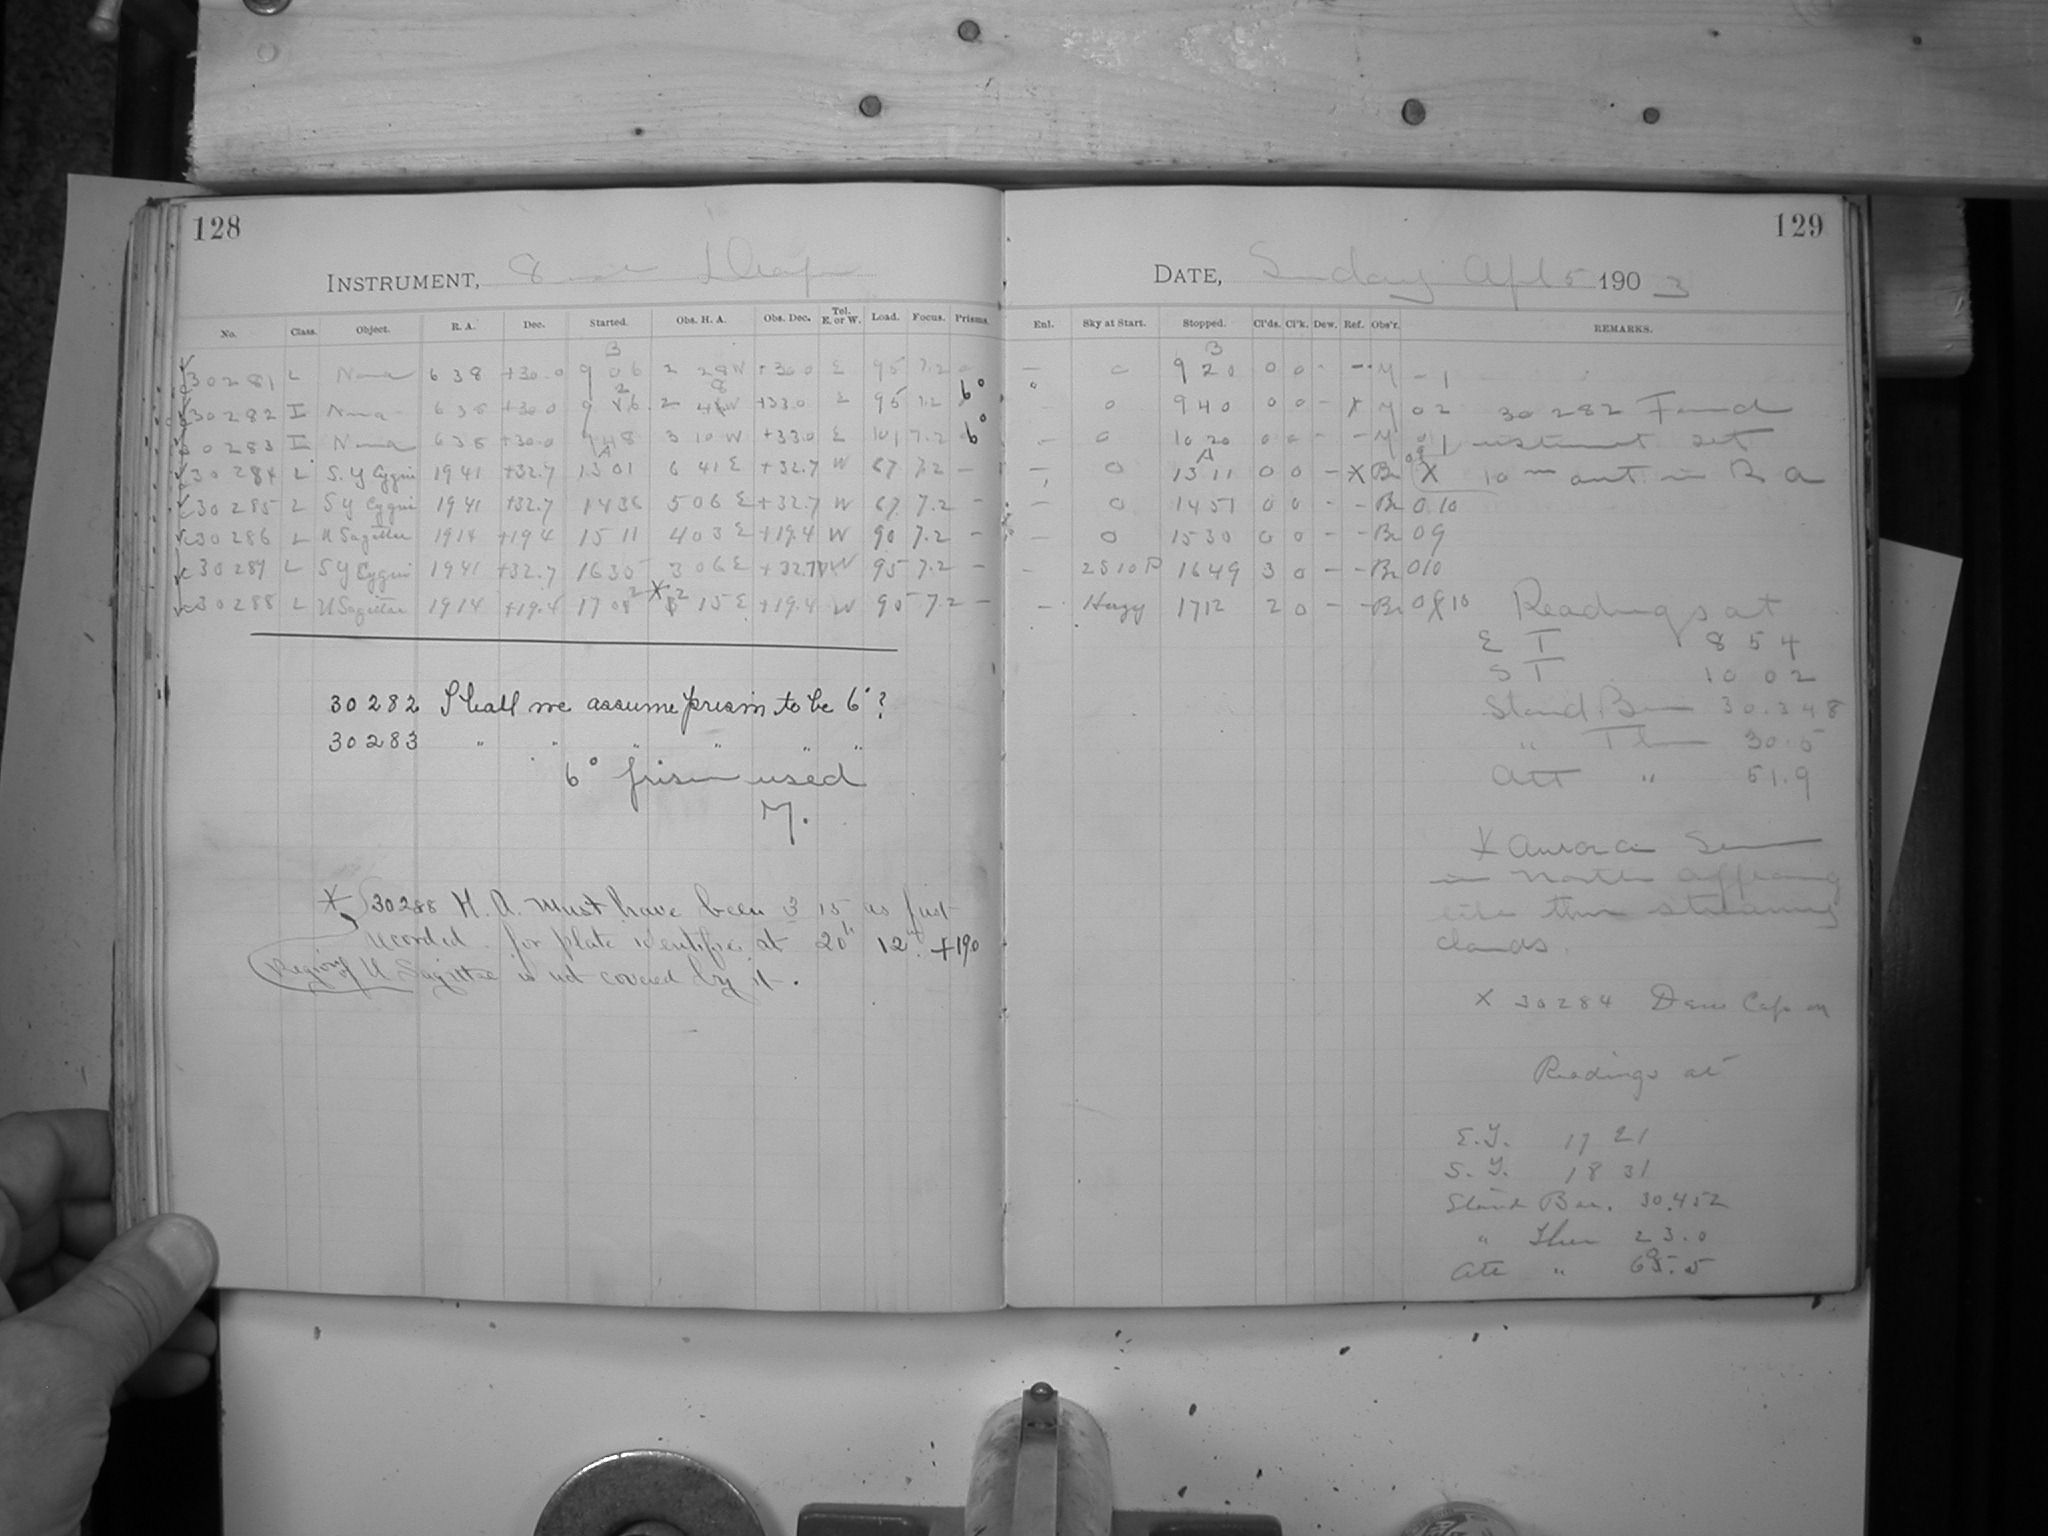 128
INSTRUMENT, 8 inch Draper
No. Class. Object. R. A. Dec. Started. Obs. H. A. Obs. Dec. Tel. E. or W. Load. Focus. Prisms.
30281 L Nova 6 38 +30.0 9 06 2 28 W +30.0 E 95 7.2
30282 I Nova 6 38 +30.0 9 26 2 48 W +33.0 E 95 7.2 6°
30283 I Nova 6 38 +30.0 9 48 3 10 W +33.0 E 101 7.2 6°
30284 L S.Y Cygni 19 41 +32.7 13 01 6 41 E +32.7 W 87 7.2 –
30285 L S Y Cygni 19 41 +32.7 14 36 5 06 E +32.7 W 87 7.2 –
30286 L U Sagittae 19 14 +19.4 15 11 4 03 E +19.4 W 90 7.2 –
30287 L S Y Cygni 19 41 +32.7 16 35 3 06 E +32.7 W 95 7.2 –
30288 L U Sagittae 19 14 +19.4 17 02 * 2 15 E +19.4 W 90 7.2 –
30282 Shall we assume prism to be 6°?
30283 " " " " " "
6° prism used
M.
* 30288 H. A. must have been 3 15 as first
recorded for plate identifies at 20h 12m +190
Region of U Sagittae is not covered by it.
129
DATE, Sunday Apl 5 1903
Enl. Sky at Start. Stopped. Cl'ds. Cl'k. Dew. Ref. Obs'r. REMARKS.
– 0 9 20 0 0 - - M – 1
0 9 40 0 0 - X M 0 2 30282 Found
– 0 10 20 0 0 - - M 0 1 instrument set
– 0 13 11 0 0 - X Br X 10 m out in R a
– 0 14 51 0 0 - - Br 0 10
– 0 15 30 0 0 - - Br 0 9
– 2 S 10 P 16 49 3 0 - - Br 0 10
– Hazy 17 12 2 0 - - Br 0 10
Readings at
E T 8 54
S T 10 02
Stand. Bar 30.348
" Th 30.5
Att " 51.9
X Aurora Seen
in North appearing
like thin streaming
clouds.
X 30284 Dew Cap on
Readings at
E.T. 17 21
S.T. 18 31
Stand Bar. 30.452
" Ther 23.0
Att "